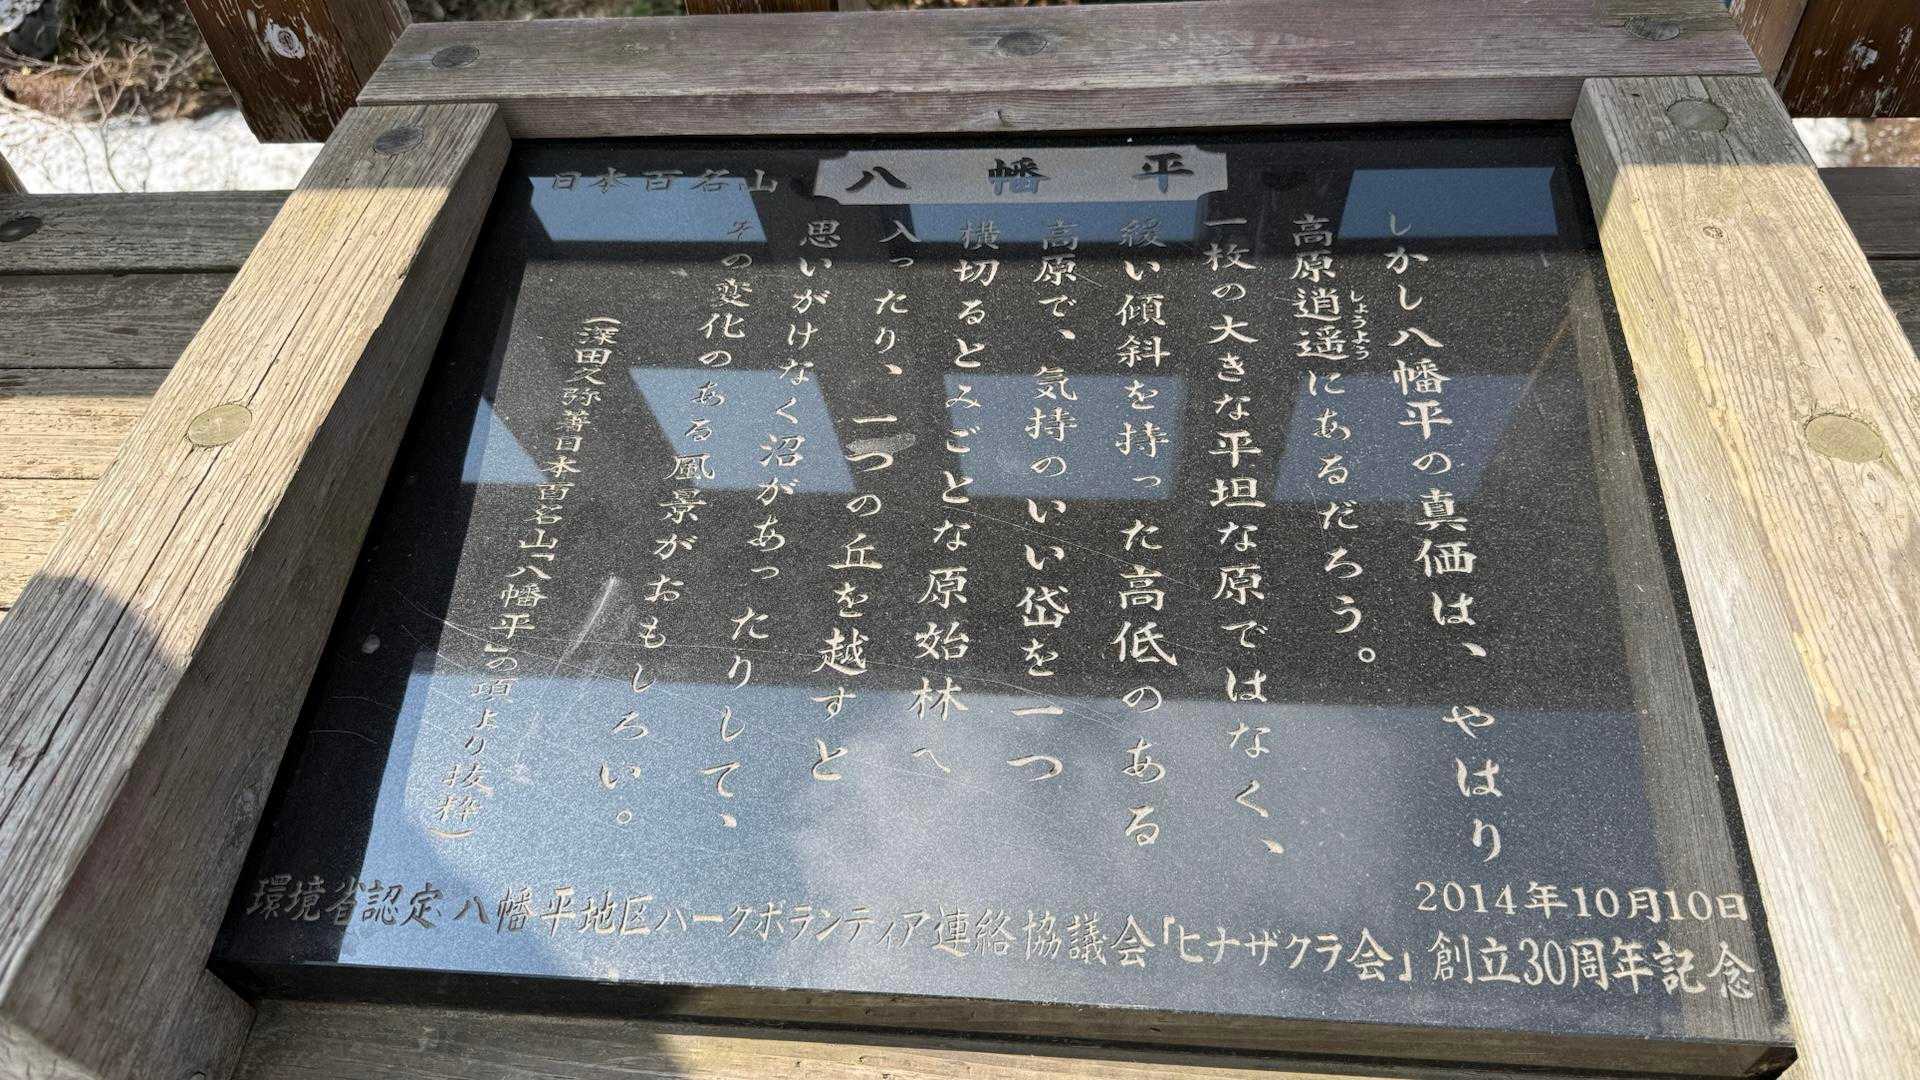 日本百名山 八幡平
しかし八幡平の真価は、やはり
高原逍遥にあるだろう。
しょうよう
一枚の大きな平坦な原ではなく、
緩い傾斜を持った高低のある
高原で、気持のいい岱を一つ
横切るとみごとな原始林へ
入ったり、一つの丘を越すと
思いがけなく沼があったりして、
その変化のある風景がおもしろい。
(深田久弥著日本百名山「八幡平」の項より抜粋)
2014年10月10日
環境省認定八幡平地区パークボランティア連絡協議会「ヒナザクラ会」創立30周年記念